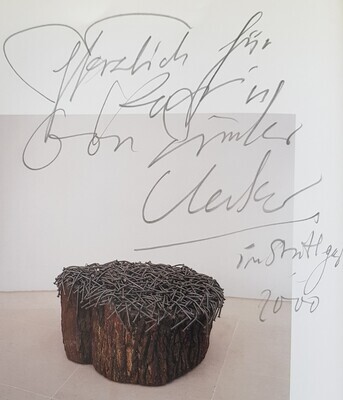 Herzlich für
von Günther
Uecker
in Stuttgart
2000